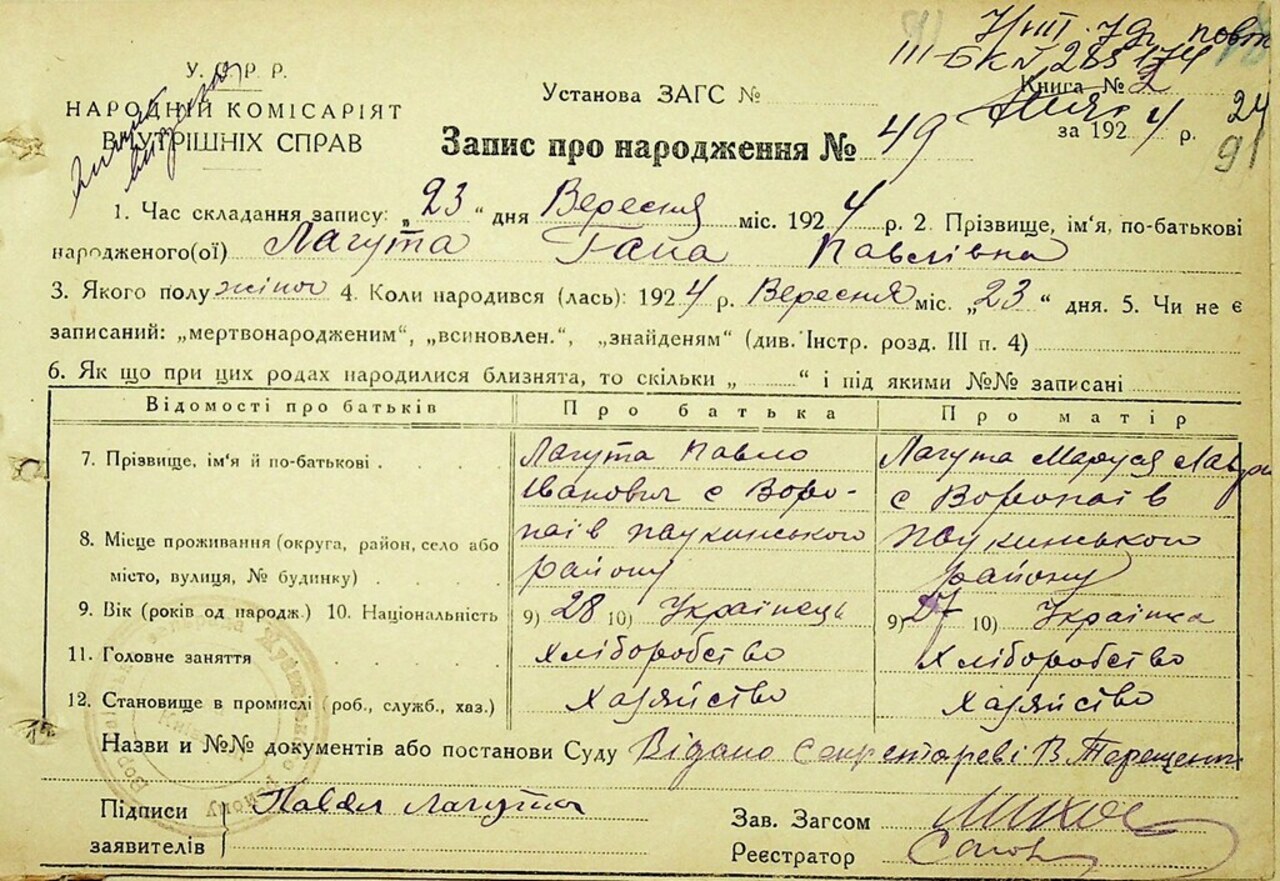 У. С. Р. Р.
НАРОДНІЙ КОМІСАРІЯТ
ВНУТРІШНІХ СПРАВ
Установа ЗАГС №
III БК №
Книга № 2
за 1924 р.
24
91
Запис про народження № 49
1. Час складання запису: „23“ дня Вересня міс. 1924 р. 2. Прізвище, ім'я, по-батькові
народженого(ої) Лагута Гана Павлівна
3. Якого полу жіноч 4. Коли народився (лась): 1924 р. Вересня міс. „23“ дня. 5. Чи не є
записаний: „мертвонародженим“, „всиновлен.“, „знайденям“ (див. Інстр. розд. III п. 4)
6. Як що при цих родах народилися близнята, то скільки „ “ і під якими №№ записані
Відомості про батьків Про батька Про матір
7. Прізвище, ім'я й по-батькові Лагута Павло Лагута Маруся
Іванович с Воро- с Воропаїв
8. Місце проживання (округа, район, село або паїв
місто, вулиця, № будинку) району району
9. Вік (років од народж.) 10. Національність 9) 28 10) Українець 9) 27 10) Українка
11. Головне заняття Хліборобство Хліборобство
12. Становище в промислі (роб., служб., хаз.) Хазяйство Хазяйство
Назви и №№ документів або постанови Суду Видано Секретареві В. Терещенк
Підписи Павел Лагута
заявителів
Зав. Загсом
Реєстратор